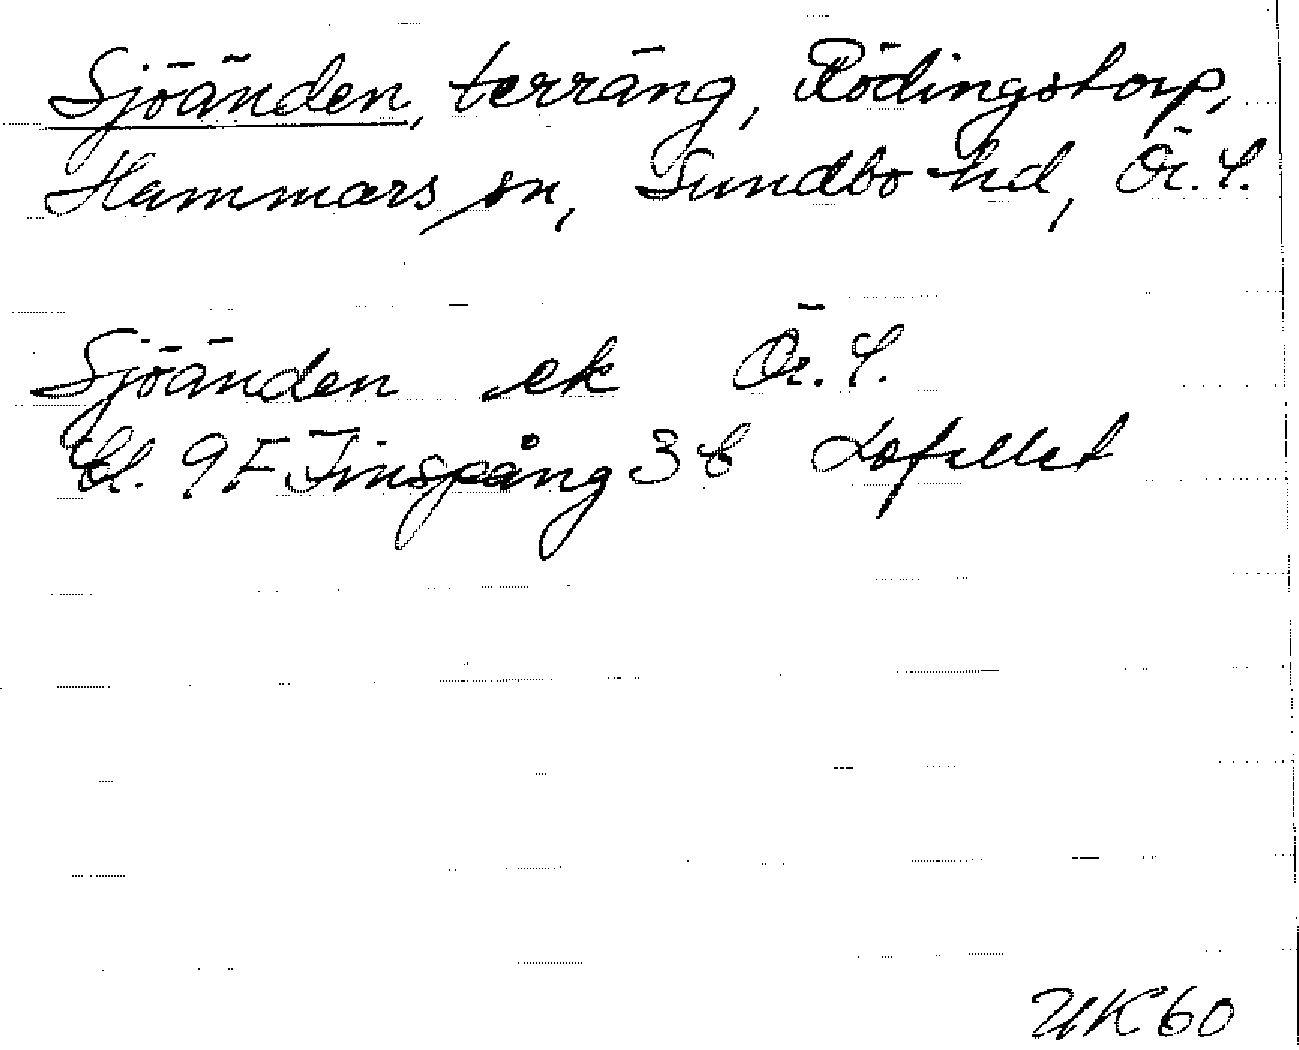 Sjöänden, terräng, Rödingstorp,
Hammars sn, Sundbo hd, Ör. L.
Sjöänden ek Ör. L.
Bl. 9F Finspång 3 b Lofallet
UK60